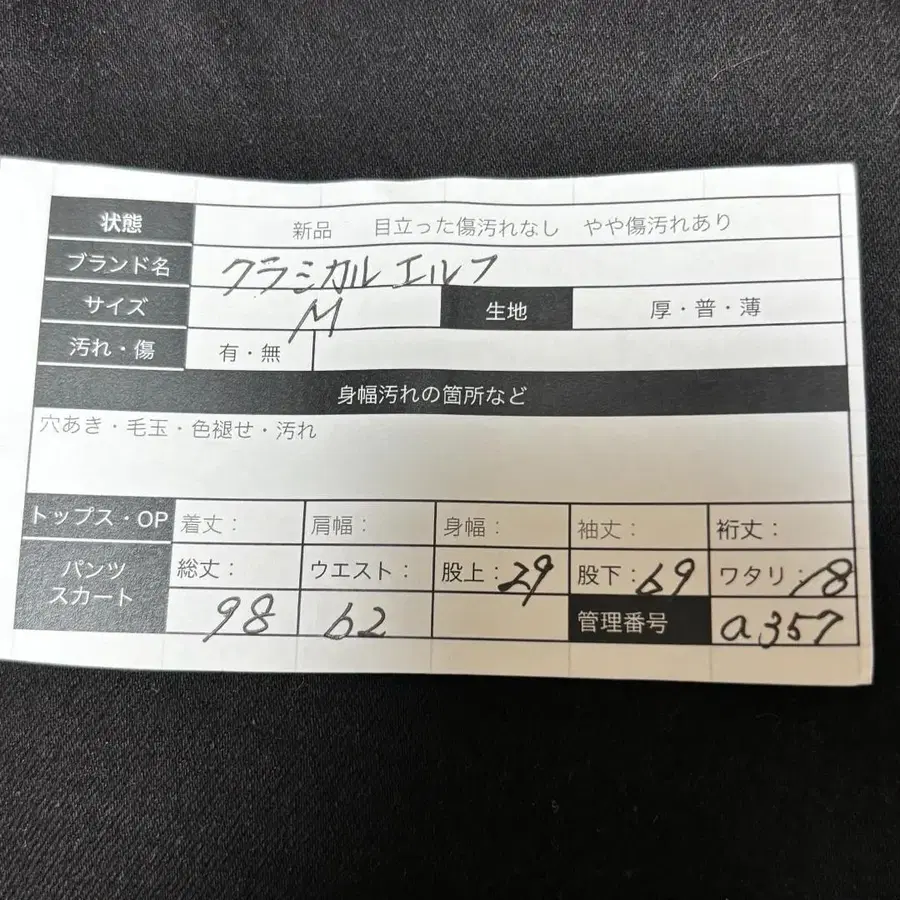 状態 新品 目立った傷汚れなし やや傷汚れあり
ブランド名 クラミカルエルフ
サイズ M 生地 厚・普・薄
汚れ・傷 有・無
身幅汚れの箇所など
穴あき・毛玉・色褪せ・汚れ
トップス・OP 着丈: 肩幅: 身幅: 袖丈: 裄丈:
パンツ スカート 総丈: ウエスト: 股上:29 股下:69 ワタリ:18
98 62 管理番号 a357